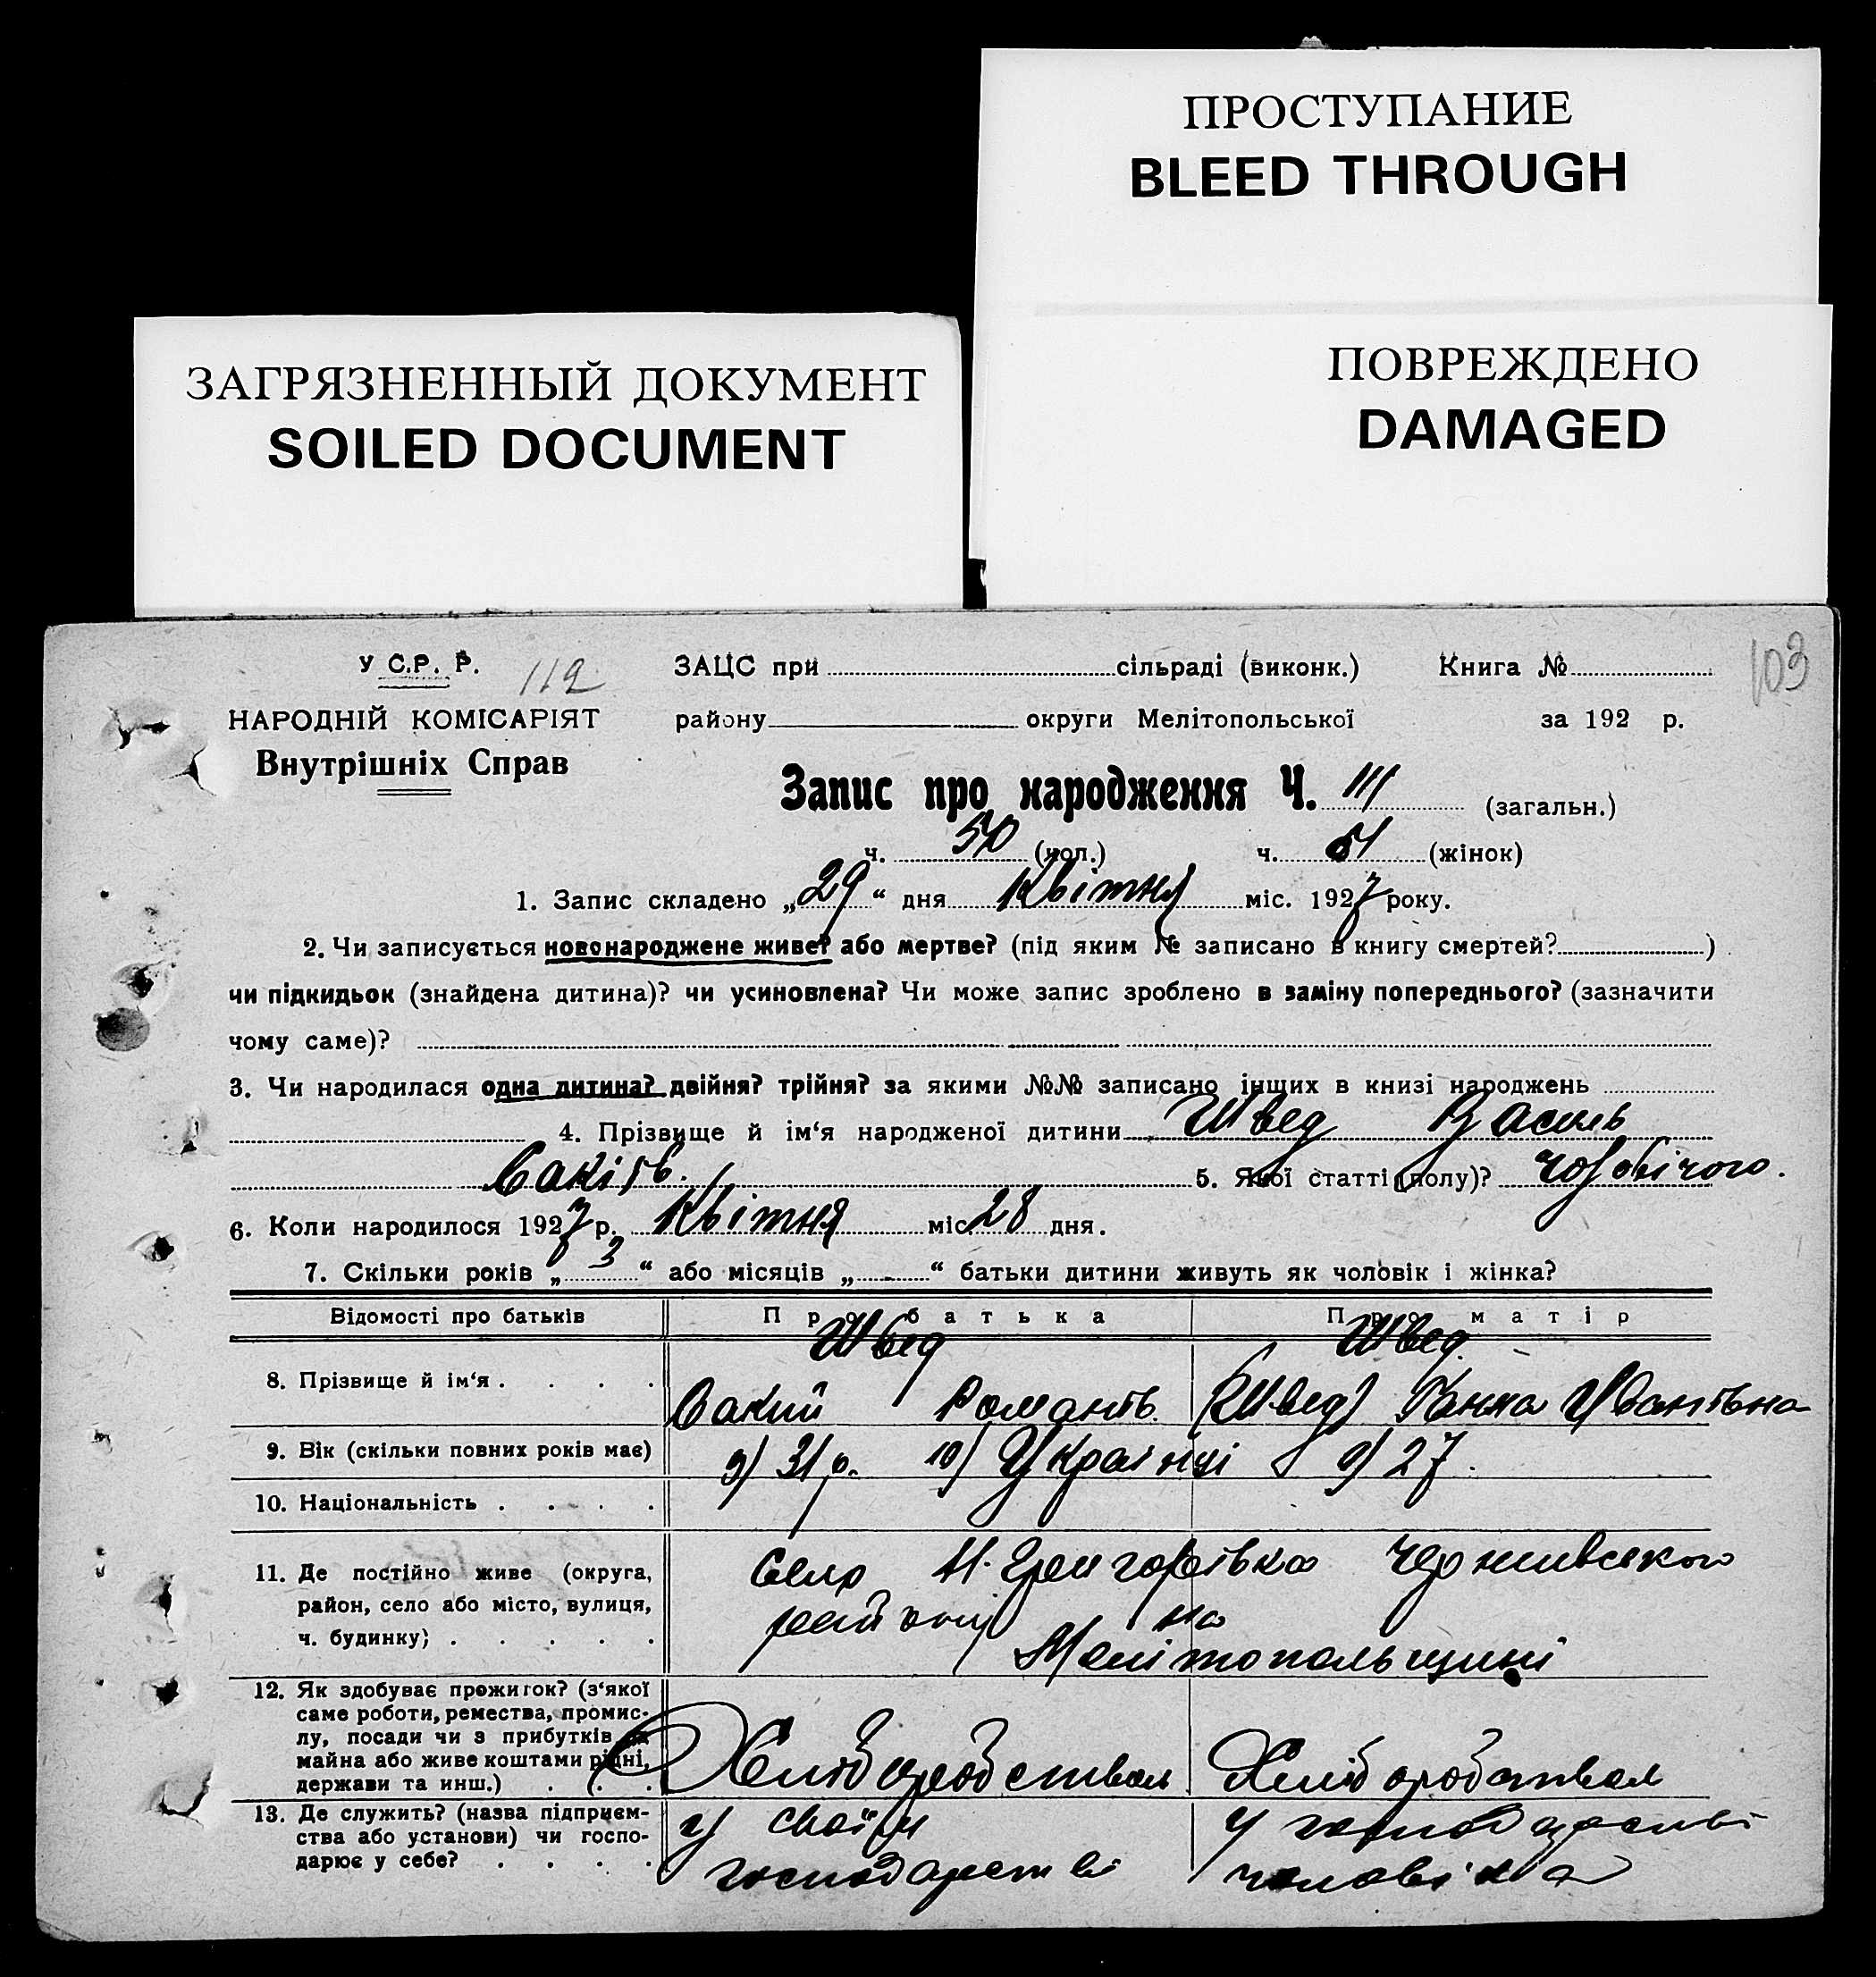 ПРОСТУПАНИЕ
BLEED THROUGH
ЗАГРЯЗНЕННЫЙ ДОКУМЕНТ
SOILED DOCUMENT
ПОВРЕЖДЕНО
DAMAGED
103
У С.Р. Р. 112
НАРОДНІЙ КОМІСАРІЯТ
Внутрішніх Справ
ЗАЦС при сільраді (виконк.) Книга №
району округи Мелітопольської за 192 р.
Запис про народження Ч. 111 (загальн.)
ч. 50 (чол.) ч. 61 (жінок)
1. Запис складено „29“ дня Квітня міс. 1927 року.
2. Чи записується новонароджене живе? або мертве? (під яким № записано в книгу смертей? )
чи підкидьок (знайдена дитина)? чи усиновлена? Чи може запис зроблено в заміну попереднього? (зазначити
чому саме)?
3. Чи народилася одна дитина? двійня? трійня? за якими №№ записано інших в книзі народжень
4. Прізвище й ім‘я народженої дитини Швед Василь
5. Якої статті (полу)? чоловічого.
6. Коли народилося 1927 р. Квітня міс. 28 дня.
7. Скільки років „3“ або місяців „-“ батьки дитини живуть як чоловік і жінка?
Відомості про батьків Про батька Про матір
Швед Швед
8. Прізвище й ім‘я . . . . Романів (Швед) Ганна Іванівна
9. Вік (скільки повних років має) 9) 31 р. 10) Українці 9) 27.
10. Національність . . . .
11. Де постійно живе (округа,
район, село або місто, вулиця,
ч. будинку) . . . . .
Село Н. Григорівка
району на
Мелітопольщині
12. Як здобуває прожиток? (з‘якої
саме роботи, ремества, промис-
лу, посади чи з прибутків
майна або живе коштами рідні,
держави та инш.) . . .
Хліборобством Хліборобством
13. Де служить? (назва підприєм-
ства або установи) чи госпо-
дарює у себе? . . . .
У своїм У господарстві
господарстві чоловіка